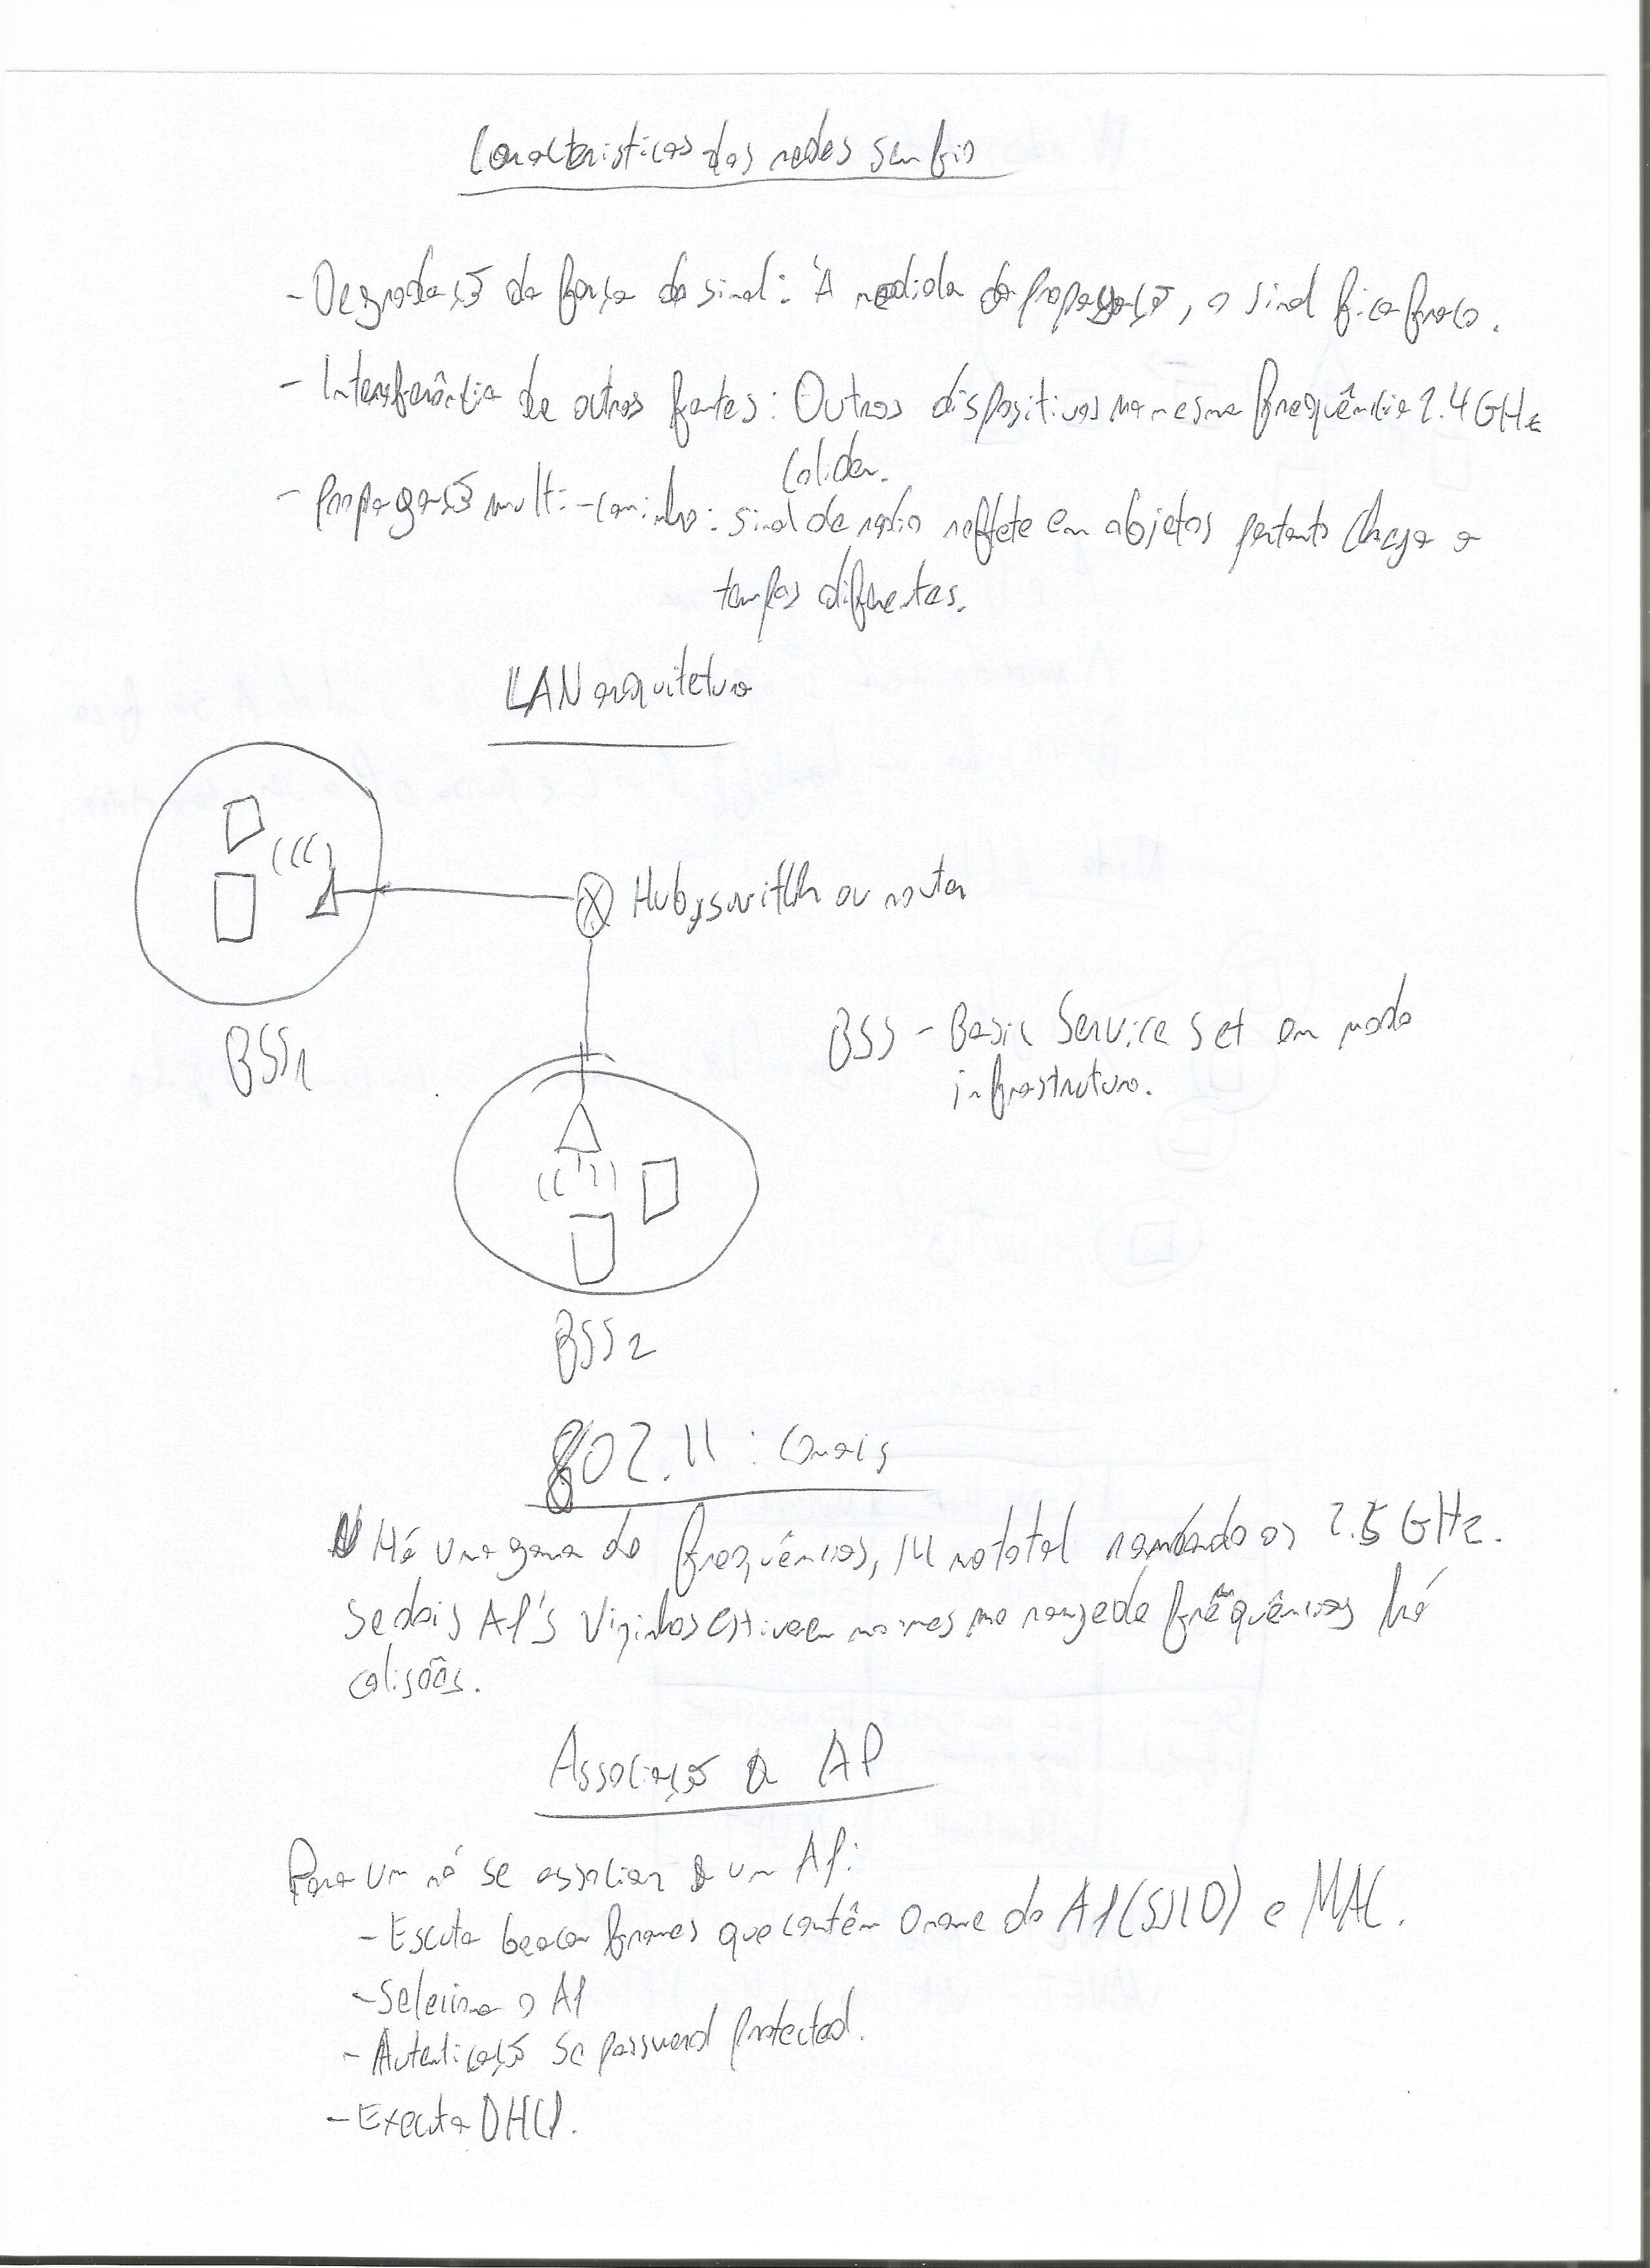 Caracteristicas das redes sem fio
- Degradação da força do sinal: À medida da propagação, o sinal fica fraco.
- Interferência de outras fontes: Outros dispositivos na mesma frequência 2.4 GHz
colidem.
- Propagação multi-caminho: sinal de radio reflete em objetos portanto chega a
tempos diferentes.
LAN arquitetura
Hub, switch ou router
BSS1
BSS - Basic Service Set em modo
infrastrutura.
BSS2
802.11: Canais
Há uma gama de frequências, 14 no total rondando os 2.5 GHz.
Se dois AP's vizinhos estiverem no mesmo range de frequências há
colisões.
Associação a AP
Para um nó se associar a um AP:
- Escuta beacon frames que contêm o nome do AP (SSID) e MAC.
- Seleciona o AP
- Autenticação se password protected.
- Executa DHCP.